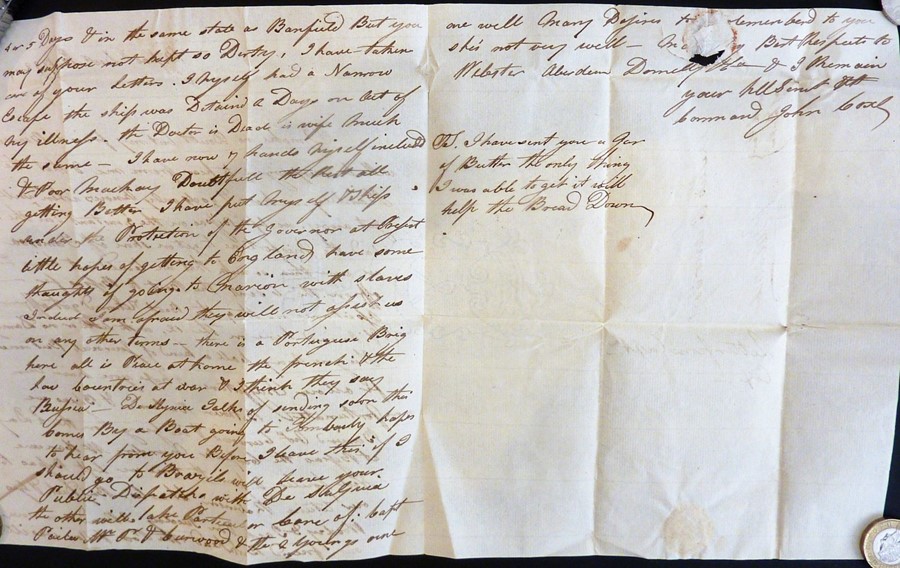 4 or 5 Days & in the same state as Banfield But you
may suppose not kept so Dirty. I have taken
care of your letters. I myself had a Narrow
Escape the ship was Detaind 2 Days on Act of
My illness. the Doctor is Dead is wife Much
the same — I have now 7 hands Myself included
& Poor Mackay Doubtfull the Rest all
getting Better I have put Myself & Ships
under the Protection of the Governor at Present
little hopes of getting to England have some
thoughts of going to with slaves
Indeed I am afraid they will not assist us
on any other terms — there is a Portuguise Brig
here all is Peace at home the french & the
low Countries at war & I think they say
Russia — De Talks of sending soon this
comes By a Boat going to hopes
to hear from you Before I leave this if I
should go to will leave your
Public Dispatchs with De
the other will take Particular Care of. Capt
Mr. & & the 2 Youngs are
are well Many Desires to rememberd to you
shes not very well — Best Respects to
Webster Aberdein & I Remain
your
Command John
PS. I have sent you a Gar
of Butter the only thing
I was able to get it will
help the Bread Down